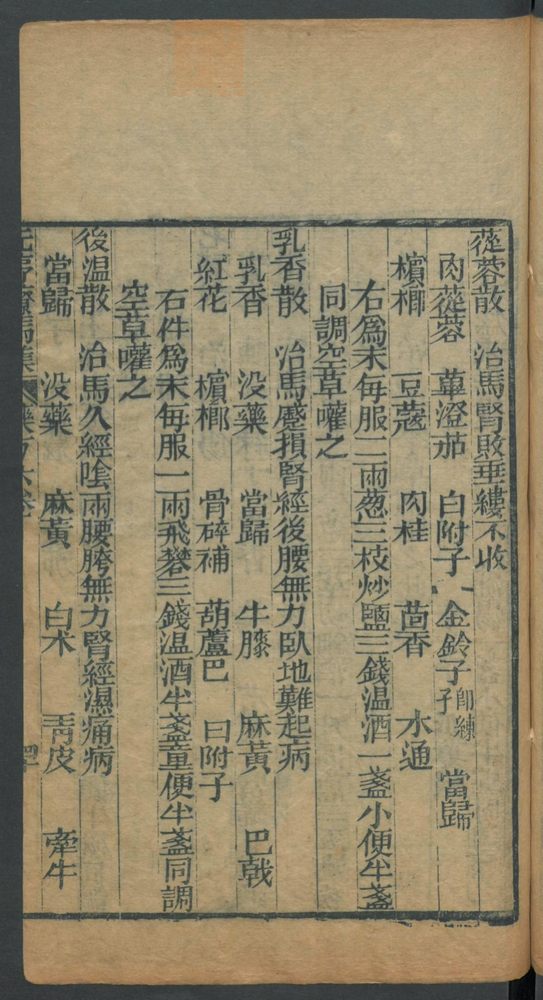 蓯蓉散　治馬腎敗垂縷不收
肉蓯蓉　蓽澄茄　白附子　金鈴子即練子　當歸
檳榔　豆蔻　肉桂　茴香　木通
右爲末每服二兩葱三枝炒鹽三錢温酒一盞小便半盞
同調空草嚾之
乳香散　治馬蹙損腎經後腰無力臥地難起病
乳香　没藥　當歸　牛膝　麻黃　巴戟
紅花　檳榔　骨碎補　葫蘆巴　曰附子
右件爲末每服一兩飛礬三錢温酒半盞童便半盞同調
空草嚾之
後温散　治馬久經陰雨腰胯無力腎經濕痛病
當歸　没藥　麻黃　白术　靑皮　牽牛
元亨療馬集　藥方六卷